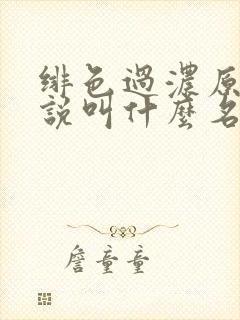 緋色過濃原
說叫什麼名
詹童童